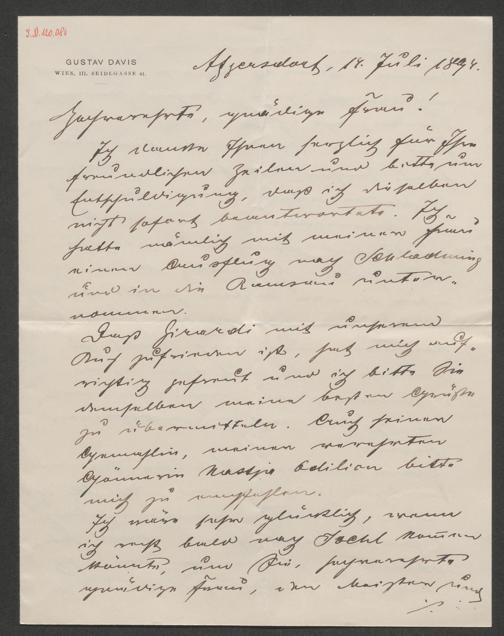 I.N. 120.081
GUSTAV DAVIS
WIEN, III. SEIDLGASSE
Atzgersdorf, 14. Juli 1894.
Hochverehrte, gnädige Frau!
Ich danke Ihnen herzlich für Ihre
freundlichen Zeilen und bitte um
Entschuldigung, daß ich dieselben
nicht sofort beantwortete. Ich
hatte nämlich mit meiner Frau
einen Ausflug nach Schladming
und in die Ramsau unter-
nommen.
Daß Girardi mit unserem
Buch zufrieden ist, hat mich auf-
richtig gefreut und ich bitte Sie
demselben meine besten Grüße
zu übermitteln. Auch seiner
Gemahlin, meiner verehrten
Gönnerin bitte
mich zu empfehlen.
Ich wäre sehr glücklich, wenn
ich recht bald nach Ischl kommen
könnte, um Sie, hochverehrte
gnädige Frau, den Meister und